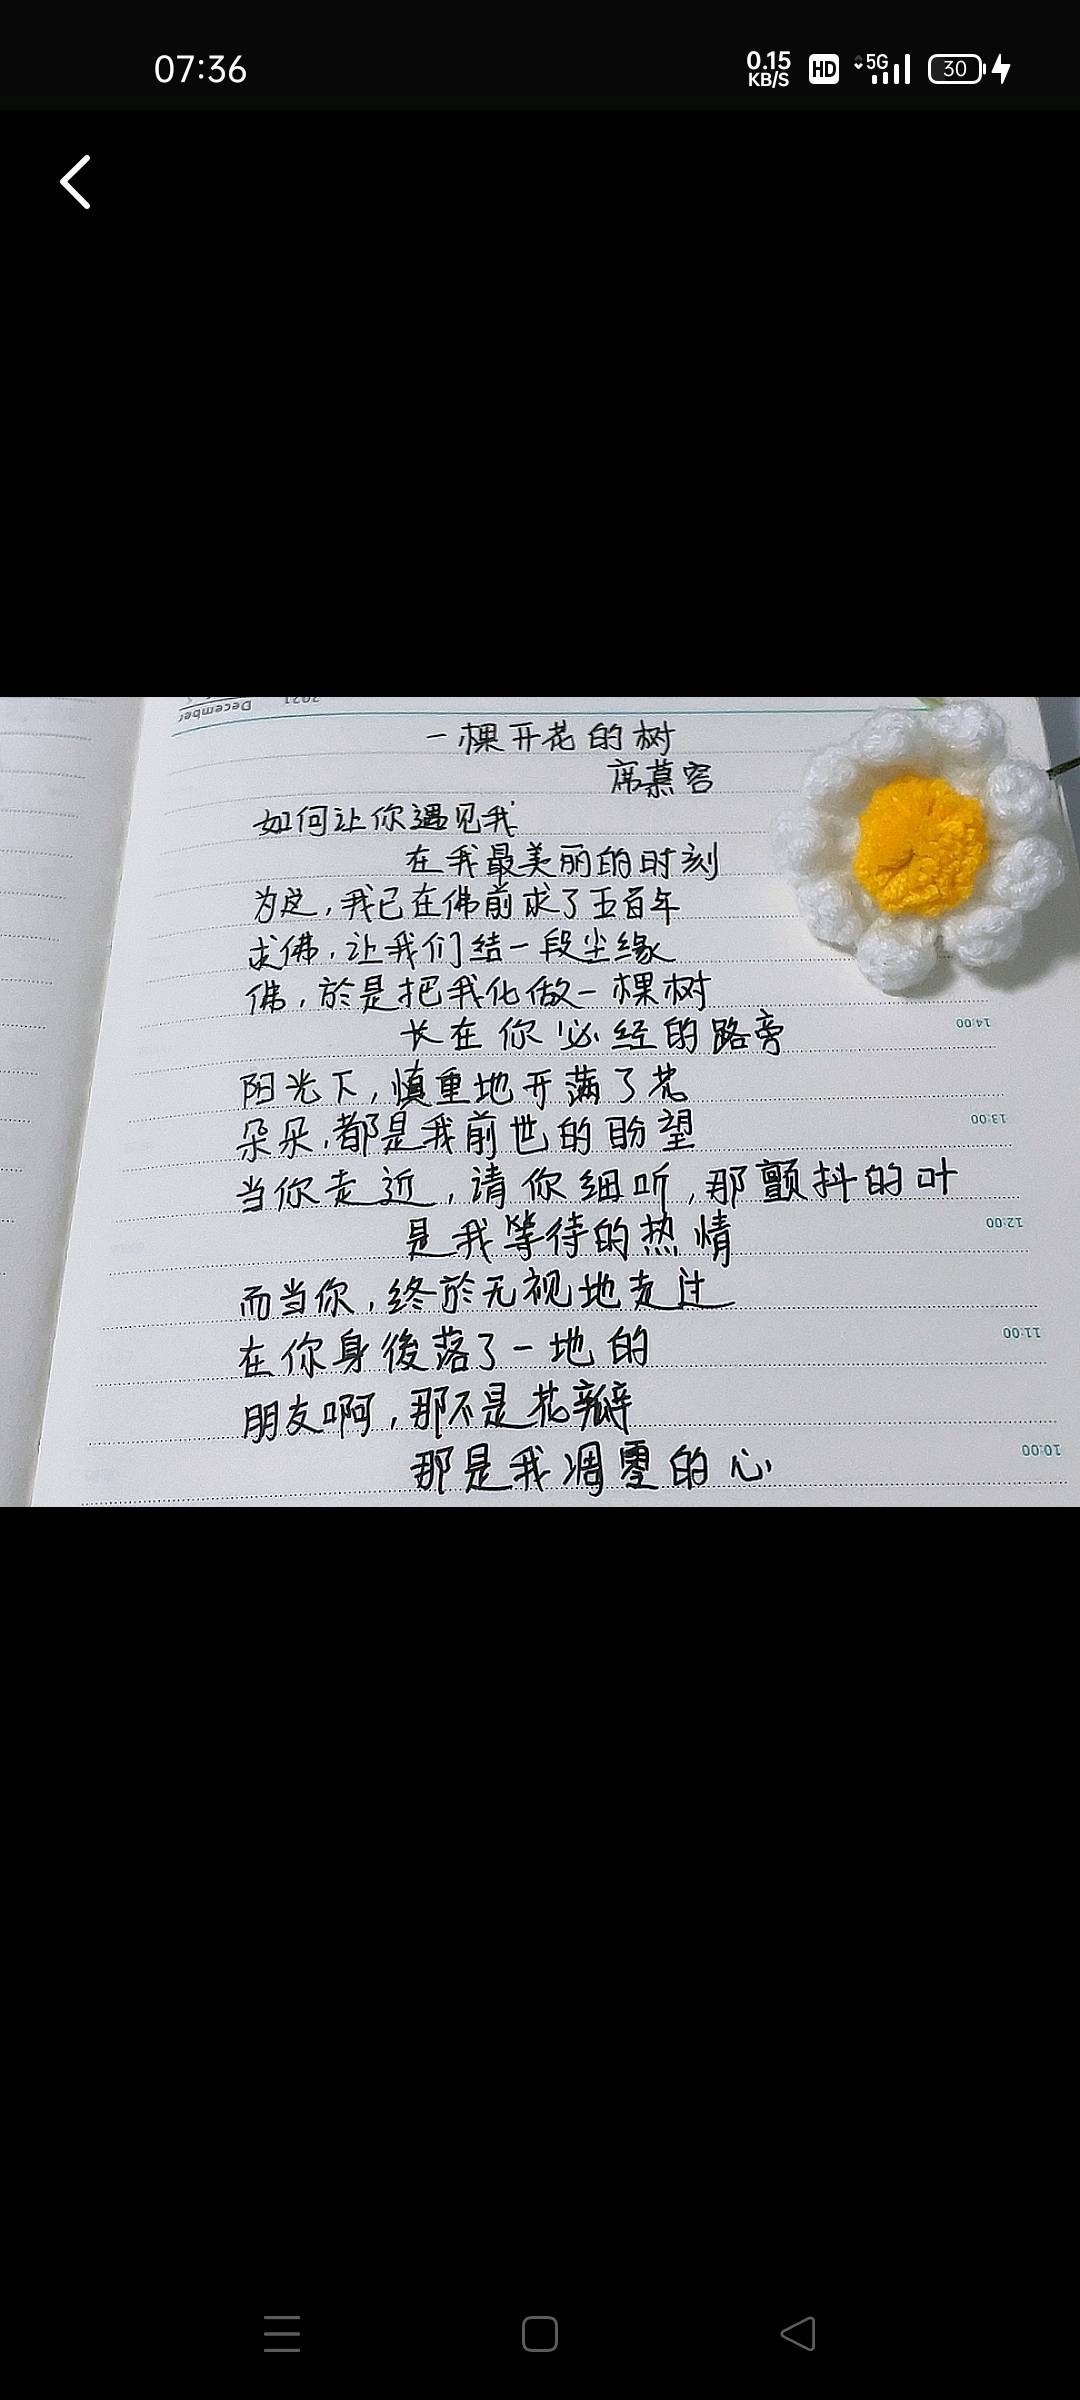 07:36
0.15 KB/S HD 5G 30
December 2021
一棵开花的树
席慕容
如何让你遇见我
在我最美丽的时刻
为这,我已在佛前求了五百年
求佛,让我们结一段尘缘
佛,於是把我化做一棵树
长在你必经的路旁
14:00
阳光下,慎重地开满了花
朵朵,都是我前世的盼望
13:00
当你走近,请你细听,那颤抖的叶
是我等待的热情
12:00
而当你,终於无视地走过
11:00
在你身後落了一地的
朋友啊,那不是花瓣
那是我凋零的心
10:00